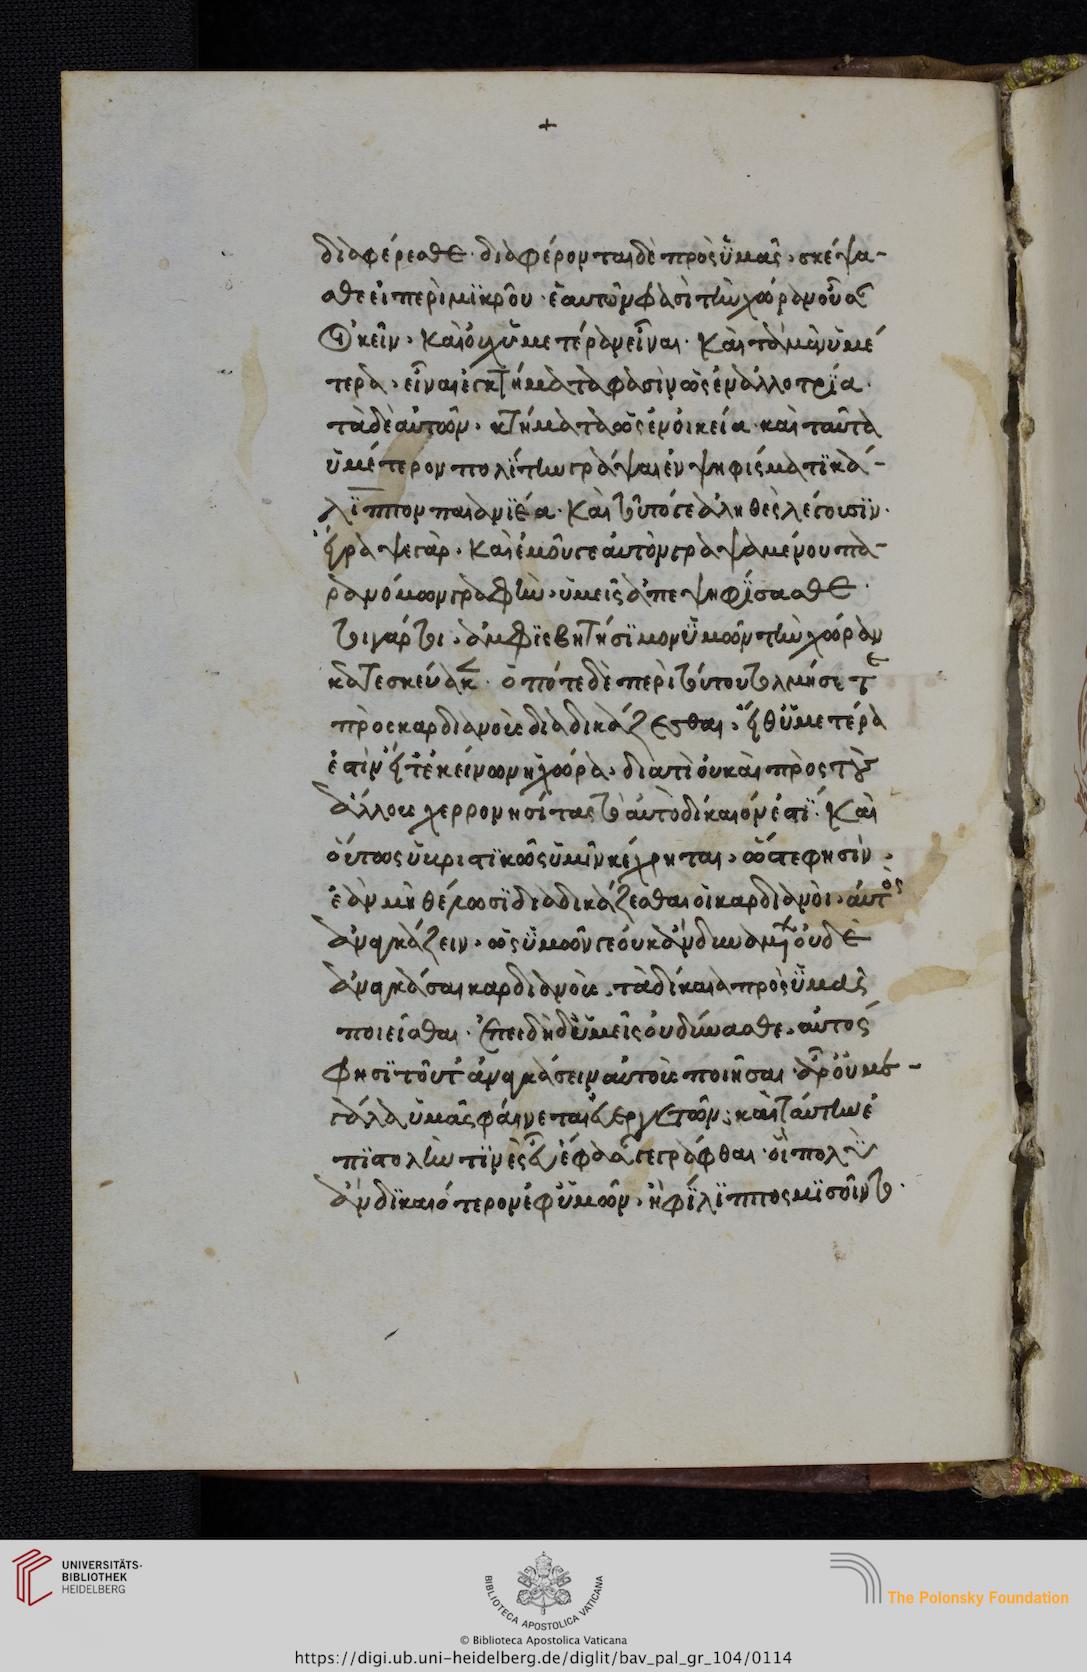 +
διαφέρεσθε· διαφέρονται δὲ πρὸς ὑμᾶς, σκέψα-
σθε εἰ περὶ μικροῦ· ἑαυτῶν φασὶ τὴν χώραν οὖσαν
οἰκεῖν, καὶ οὐχ ὑμετέραν εἶναι· καὶ τὰ μὲν ὑμέ
τερα, εἶναι ἐγκτήματα φασὶν ὡς ἐν ἀλλοτρία·
τὰ δὲ αὑτῶν, κτήματα ὡς ἐν οἰκεία· καὶ ταῦτα
ὑμέτερον πολίτην γράψαι ἐν ψηφίσματι κά-
λιππον παιανιέα· καὶ τοῦτό γε ἀληθὲς λέγουσιν·
ἔγραψε γὰρ, καὶ ἐμοῦ γε αὐτὸν γραψαμένου πα-
ρανόμων γραφὴν, ὑμεῖς ἀπεψηφίσασθε·
τοιγάρτοι, ἀμφισβητήσιμον ὑμῶν τὴν χώραν
κατεσκεύακε· ὁπότε δὲ περὶ τούτου τολμήσετε
πρὸς καρδιανοὺς διαδικάζεσθαι, εἴθ᾽ ὑμετέρα
ἐστὶν εἴτ᾽ ἐκείνων ἡ χώρα, διατί οὐ καὶ πρὸς τοὺς
ἄλλους χερρονησίτας τὸ αὐτὸ δίκαιόν ἐστι· καὶ
οὕτως ὑβριστικῶς ὑμῖν κέχρηται, ὥστέ φησιν,
ἐὰν μὴ θέλωσι διαδικάζεσθαι οἱ καρδιανοὶ, αὐτὸς
ἀναγκάζειν, ὡς ὑμῶν γε οὐκ ἂν δυναμένων οὐδὲ
ἀναγκάσαι καρδιανοὺς, τὰ δίκαια πρὸς ὑμᾶς
ποιεῖσθαι· ἐπειδὴ δ᾽ ὑμεῖς οὐ δύνασθε, αὐτός
φησι τοῦτ᾽ ἀναγκάσειν αὐτοὺς ποιῆσαι· ἆρ᾽ οὐ με-
γάλα ὑμᾶς φαίνεται εὐεργετῶν; καὶ ταύτην ἐ
πιστολήν τινες εὖ ἔφασαν γεγράφθαι· οἳ πολὺ
ἂν δικαιότερον ὑφ᾽ ὑμῶν, ἢ φίλιππος μισοῖντο·
UNIVERSITÄTS-
BIBLIOTHEK
HEIDELBERG
BIBLIOTECA APOSTOLICA VATICANA
© Biblioteca Apostolica Vaticana
The Polonsky Foundation
https://digi.ub.uni-heidelberg.de/diglit/bav_pal_gr_104/0114